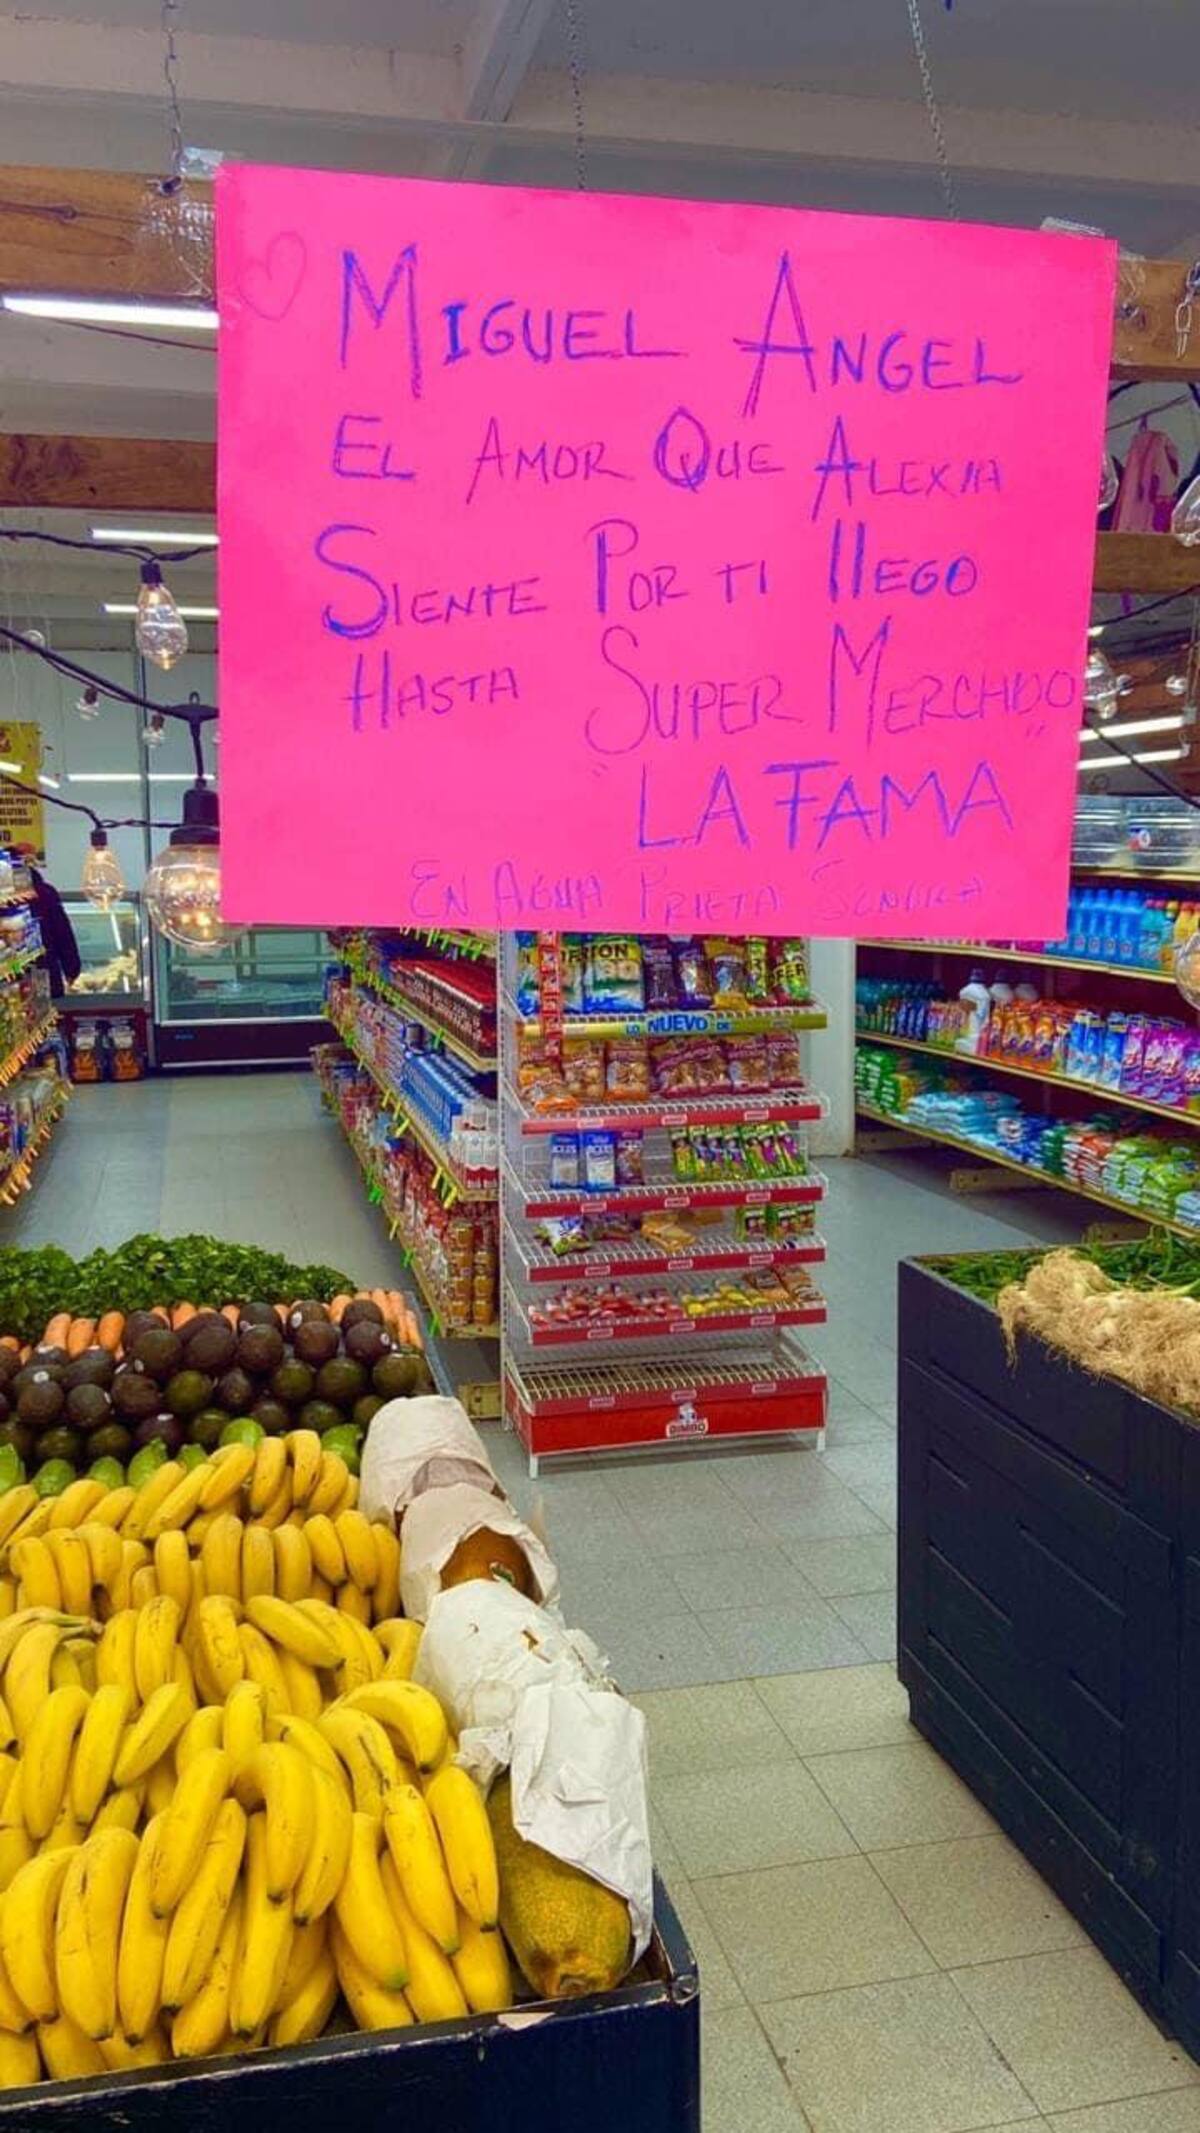 MIGUEL ANGEL
EL AMOR QUE ALEXIA
SIENTE POR TI llEGO
HASTA SUPER MERCADO
"LA FAMA"
EN AGUA PRIETA SONORA
LO NUEVO DE
BIMBO